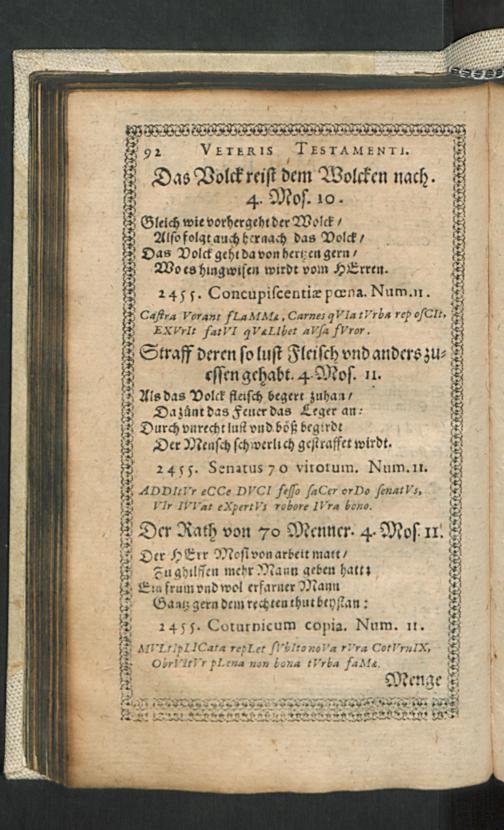 92 VETERIS TESTAMENTI.
Das Volck reist dem Wolcken nach.
4. Mos. 10.
Gleich wie vorhergeht der Wolck /
Also folgt auch hernach das Volck /
Das Volck geht da von hertzen gern /
Wo es hingwisen wirdt vom HErren.
2455. Concupiscentiæ pœna. Num. 11.
Castra Vorant fLaMMæ, Carnes qVIa tVrba reposCIt,
EXVrIt fatVI qVæLIbet aVsa fVror.
Straff deren so lust Fleisch vnd anders zu-
essen gehabt. 4. Mos. 11.
Als das Volck fleisch begert zuhan /
Da zünt das Feuer das Leger an:
Durch vnrecht lust vnd böß begirdt
Der Mensch schwerlich gestraffet wirdt.
2455. Senatus 70 virorum. Num. 11.
ADDItVr eCCe DVCI fesso saCer orDo senatVs,
VIr IVVat eXpertVs robore IVra bono.
Der Rath von 70 Menner. 4. Mos. 11.
Der HErr Mosi von arbeit matt /
Zu ghilffen mehr Mann geben hatt:
Ein frum vnd wol erfarner Mann
Gantz gern dem rechten thut beystan:
2455. Coturnicum copia. Num. 11.
MVLtIpLICata repLet sVbIto noVa rVra CotVrnIX,
ObrVItVr pLena non bona tVrba faMæ.
Menge